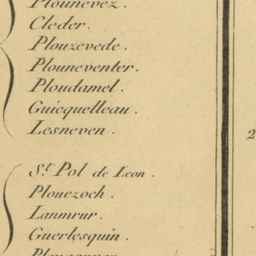 Plounevez.
Cleder.
Plouzevede.
Plouneventer.
Ploudamel.
Guicquelleau.
Lesneven.
2
St. Pol de Leon.
Plouezoch.
Lanmrur.
Guerlesquin.